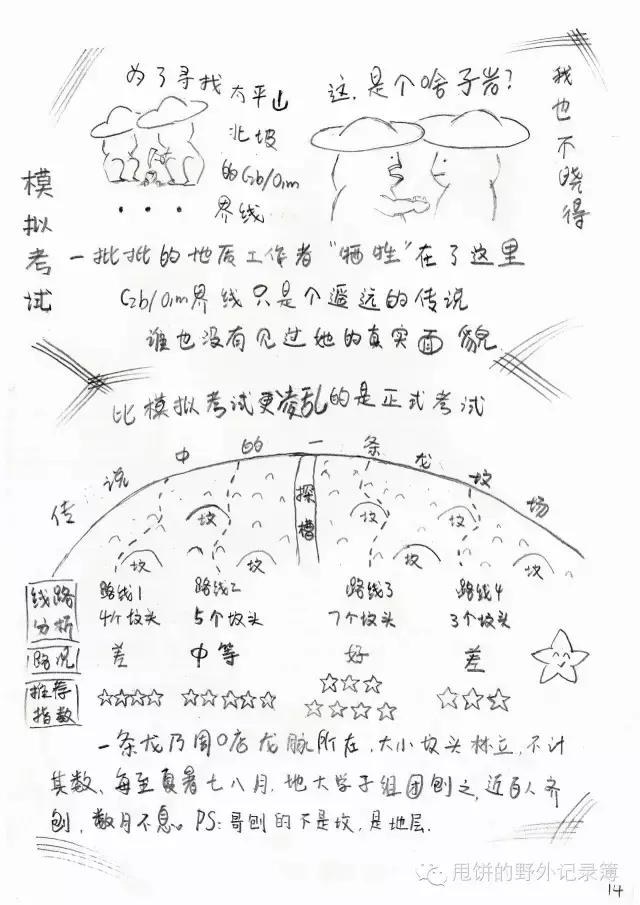 模拟考试
为了寻找太平山
北坡
的€2b/O1m
界线
···
这,是个啥子岩?
我也不晓得
一批批的地质工作者“牺牲”在了这里
€2b/O1m界线只是个遥远的传说
谁也没有见过她的真实面貌
比模拟考试更凌乱的是正式考试
传说中的一条龙坟场
探槽
坟 坟 坟
坟 坟 坟 坟
线路分析 路线1 路线2 路线3 路线4
4个坟头 5个坟头 7个坟头 3个坟头
路况 差 中等 好 差
推荐指数 ☆☆☆☆ ☆☆☆☆☆ ☆☆☆☆☆☆☆ ☆☆☆
一条龙乃周口店龙脉所在,大小坟头林立,不计
其数、每至夏暑七八月,地大学子组团刨之,近百人齐
刨,数月不息。PS:哥刨的不是坟,是地层.
甩饼的野外记录簿
14